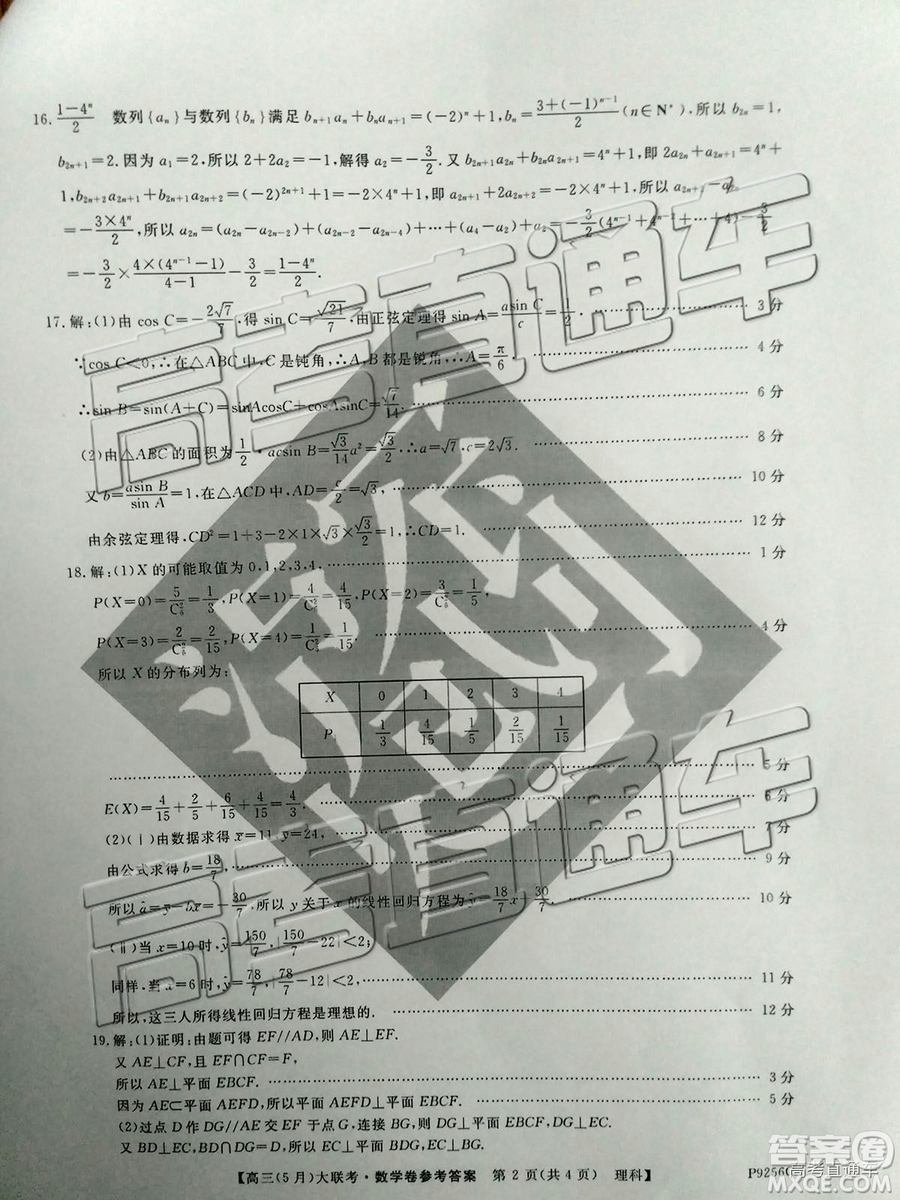 16. \frac{1-4^n}{2} 数列{a_n}与数列{b_n}满足b_{n+1}a_n+b_na_{n+1}=(-2)^n+1,b_n=\frac{3+(-1)^{n-1}}{2}(n∈N*),所以b_{2n}=1,
b_{2n+1}=2.因为a_1=2,所以2+2a_2=-1,解得a_2=-\frac{3}{2}.又b_{2n+1}a_{2n}+b_{2n}a_{2n+1}=4^n+1,即2a_{2n}+a_{2n+1}=4^n+
1,b_{2n+2}a_{2n+1}+b_{2n+1}a_{2n+2}=(-2)^{2n+1}+1,即a_{2n+1}+2a_{2n+2}=-2×4^n+1,所以
=-\frac{3×4^n}{2},所以a_{2n}=(a_{2n}-a_{2n-2})+(a_{2n-2}-a_{2n-4})+…+(a_4-a_2)+a_2=-\frac{3}{2}(4^{n-1}+4^{n-2}+…+4)-\frac{3}{2}
=-\frac{3}{2}×\frac{4×(4^{n-1}-1)}{4-1}-\frac{3}{2}=\frac{1-4^n}{2}.
17.解:(1)由cos C=-\frac{2\sqrt{7}}{7},得sin C=\frac{\sqrt{21}}{7},由正弦定理得sin A=\frac{asin C}{c}=\frac{1}{2}. 3分
∵cos C<0,∴在△ABC中,C是钝角,∴A,B都是锐角,∴A=\frac{π}{6}. 4分
∴sin B=sin(A+C)=sinAcosC+cosAsinC=\frac{\sqrt{7}}{14}. 6分
(2)由△ABC的面积为\frac{1}{2}·acsin B=\frac{\sqrt{3}}{14}a^2=\frac{\sqrt{3}}{2}.∴a=\sqrt{7},c=2\sqrt{3}. 8分
又b=\frac{asin B}{sin A}=1,在△ACD中,AD=\frac{c}{2}=\sqrt{3}, 10分
由余弦定理得,CD^2=1+3-2×1×\sqrt{3}×\frac{\sqrt{3}}{2}=1,∴CD=1. 12分
18.解:(1)X的可能取值为0,1,2,3,4, 1分
P(X=0)=\frac{5}{C_6^2}=\frac{1}{3},P(X=1)=\frac{4}{C_6^2}=\frac{4}{15},P(X=2)=\frac{3}{C_6^2}=\frac{1}{5},
P(X=3)=\frac{2}{C_6^2}=\frac{2}{15},P(X=4)=\frac{1}{C_6^2}=\frac{1}{15}. 4分
所以X的分布列为:
X 0 1 2 3 4
P \frac{1}{3} \frac{4}{15} \frac{1}{5} \frac{2}{15} \frac{1}{15}
5分
E(X)=\frac{4}{15}+\frac{2}{5}+\frac{6}{15}+\frac{4}{15}=\frac{4}{3}. 6分
(2)(ⅰ)由数据求得x̄=11,ȳ=24, 7分
由公式求得b̂=\frac{18}{7}, 9分
所以â=ȳ-b̂x̄=-\frac{30}{7},所以y关于x的线性回归方程为ŷ=\frac{18}{7}x-\frac{30}{7}. 10分
(ⅱ)当x=10时,ŷ=\frac{150}{7},|\frac{150}{7}-22|<2;
同样,当x=6时,ŷ=\frac{78}{7},|\frac{78}{7}-12|<2; 11分
所以,这三人所得线性回归方程是理想的. 12分
19.解:(1)证明:由题可得EF//AD,则AE⊥EF.
又AE⊥CF,且EF∩CF=F,
所以AE⊥平面EBCF. 3分
因为AE⊂平面AEFD,所以平面AEFD⊥平面EBCF. 5分
(2)过点D作DG//AE交EF于点G,连接BG,则DG⊥平面EBCF,DG⊥EC.
又BD⊥EC,BD∩DG=D,∴EC⊥平面BDG,EC⊥BG.
【高三(5月)大联考·数学卷参考答案 第2页(共4页) 理科】
P9256
高考直通车
高考直通车
答案圈
高考直通车